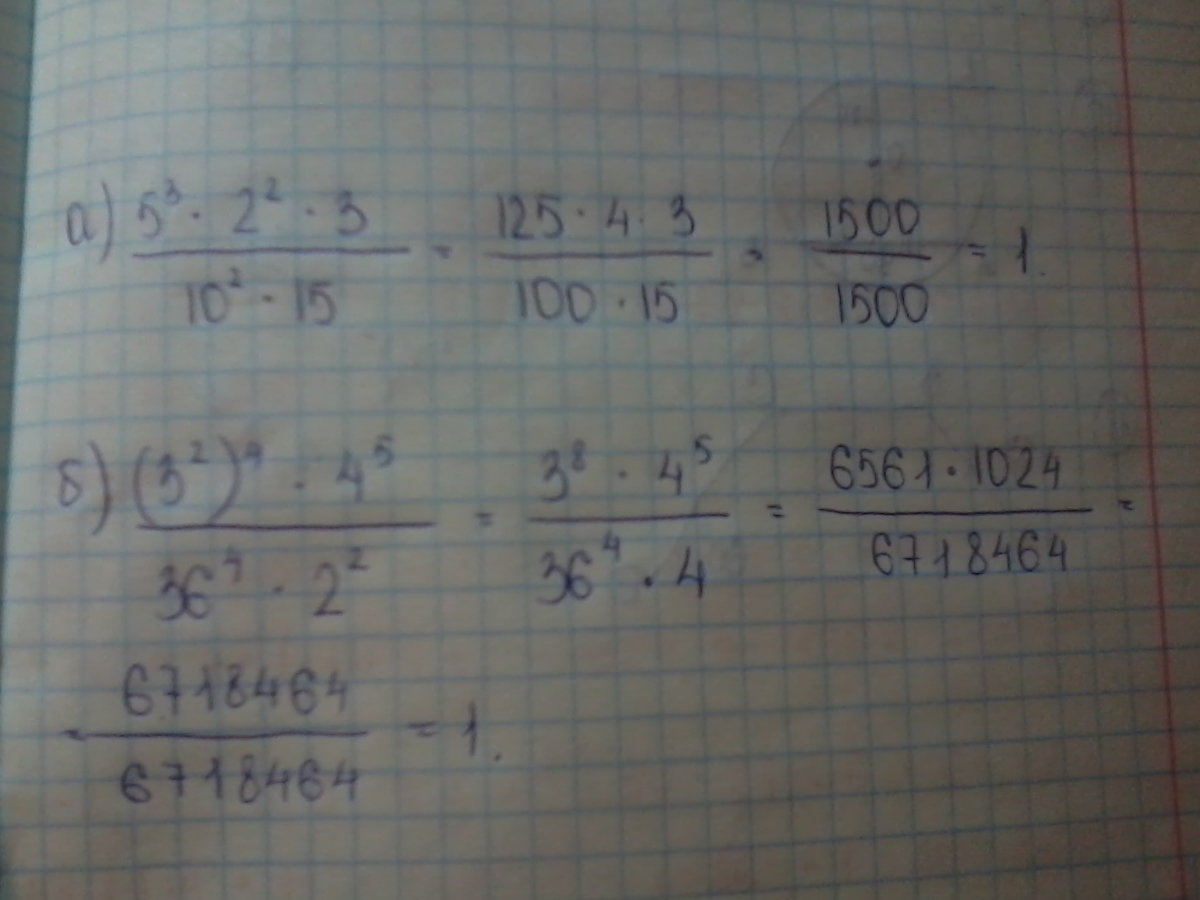 а) 5³ · 2² · 3 / 10² · 15 = 125 · 4 · 3 / 100 · 15 = 1500 / 1500 = 1.
б) (3²)⁴ · 4⁵ / 36⁴ · 2² = 3⁸ · 4⁵ / 36⁴ · 4 = 6561 · 1024 / 6718464 =
= 6718464 / 6718464 = 1.